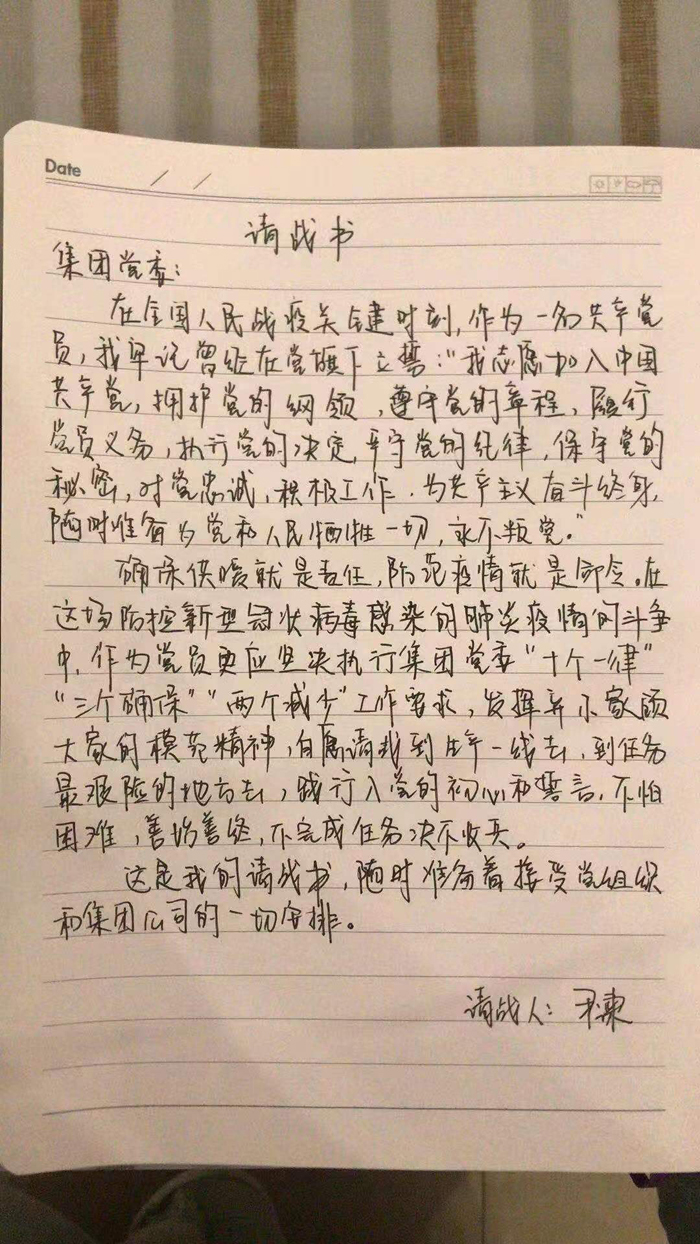 Date / /
请战书
集团党委：
在全国人民战疫关键时刻，作为一名共产党
员，我牢记曾经在党旗下立誓："我志愿加入中国
共产党，拥护党的纲领，遵守党的章程，履行
党员义务，执行党的决定，严守党的纪律，保守党的
秘密，对党忠诚，积极工作，为共产主义奋斗终身，
随时准备为党和人民牺牲一切，永不叛党。"
确保供暖就是责任，防范疫情就是命令。在
这场防控新型冠状病毒感染的肺炎疫情的斗争
中，作为党员更应坚决执行集团党委"十个一律"
"三个确保""两个减少"工作要求，发挥弃小家顾
大家的模范精神，自愿请求到生产一线去，到任务
最艰险的地方去，践行入党的初心和誓言，不怕
困难，善始善终，不完成任务决不收兵。
这是我的请战书，随时准备着接受党组织
和集团公司的一切安排。
请战人：